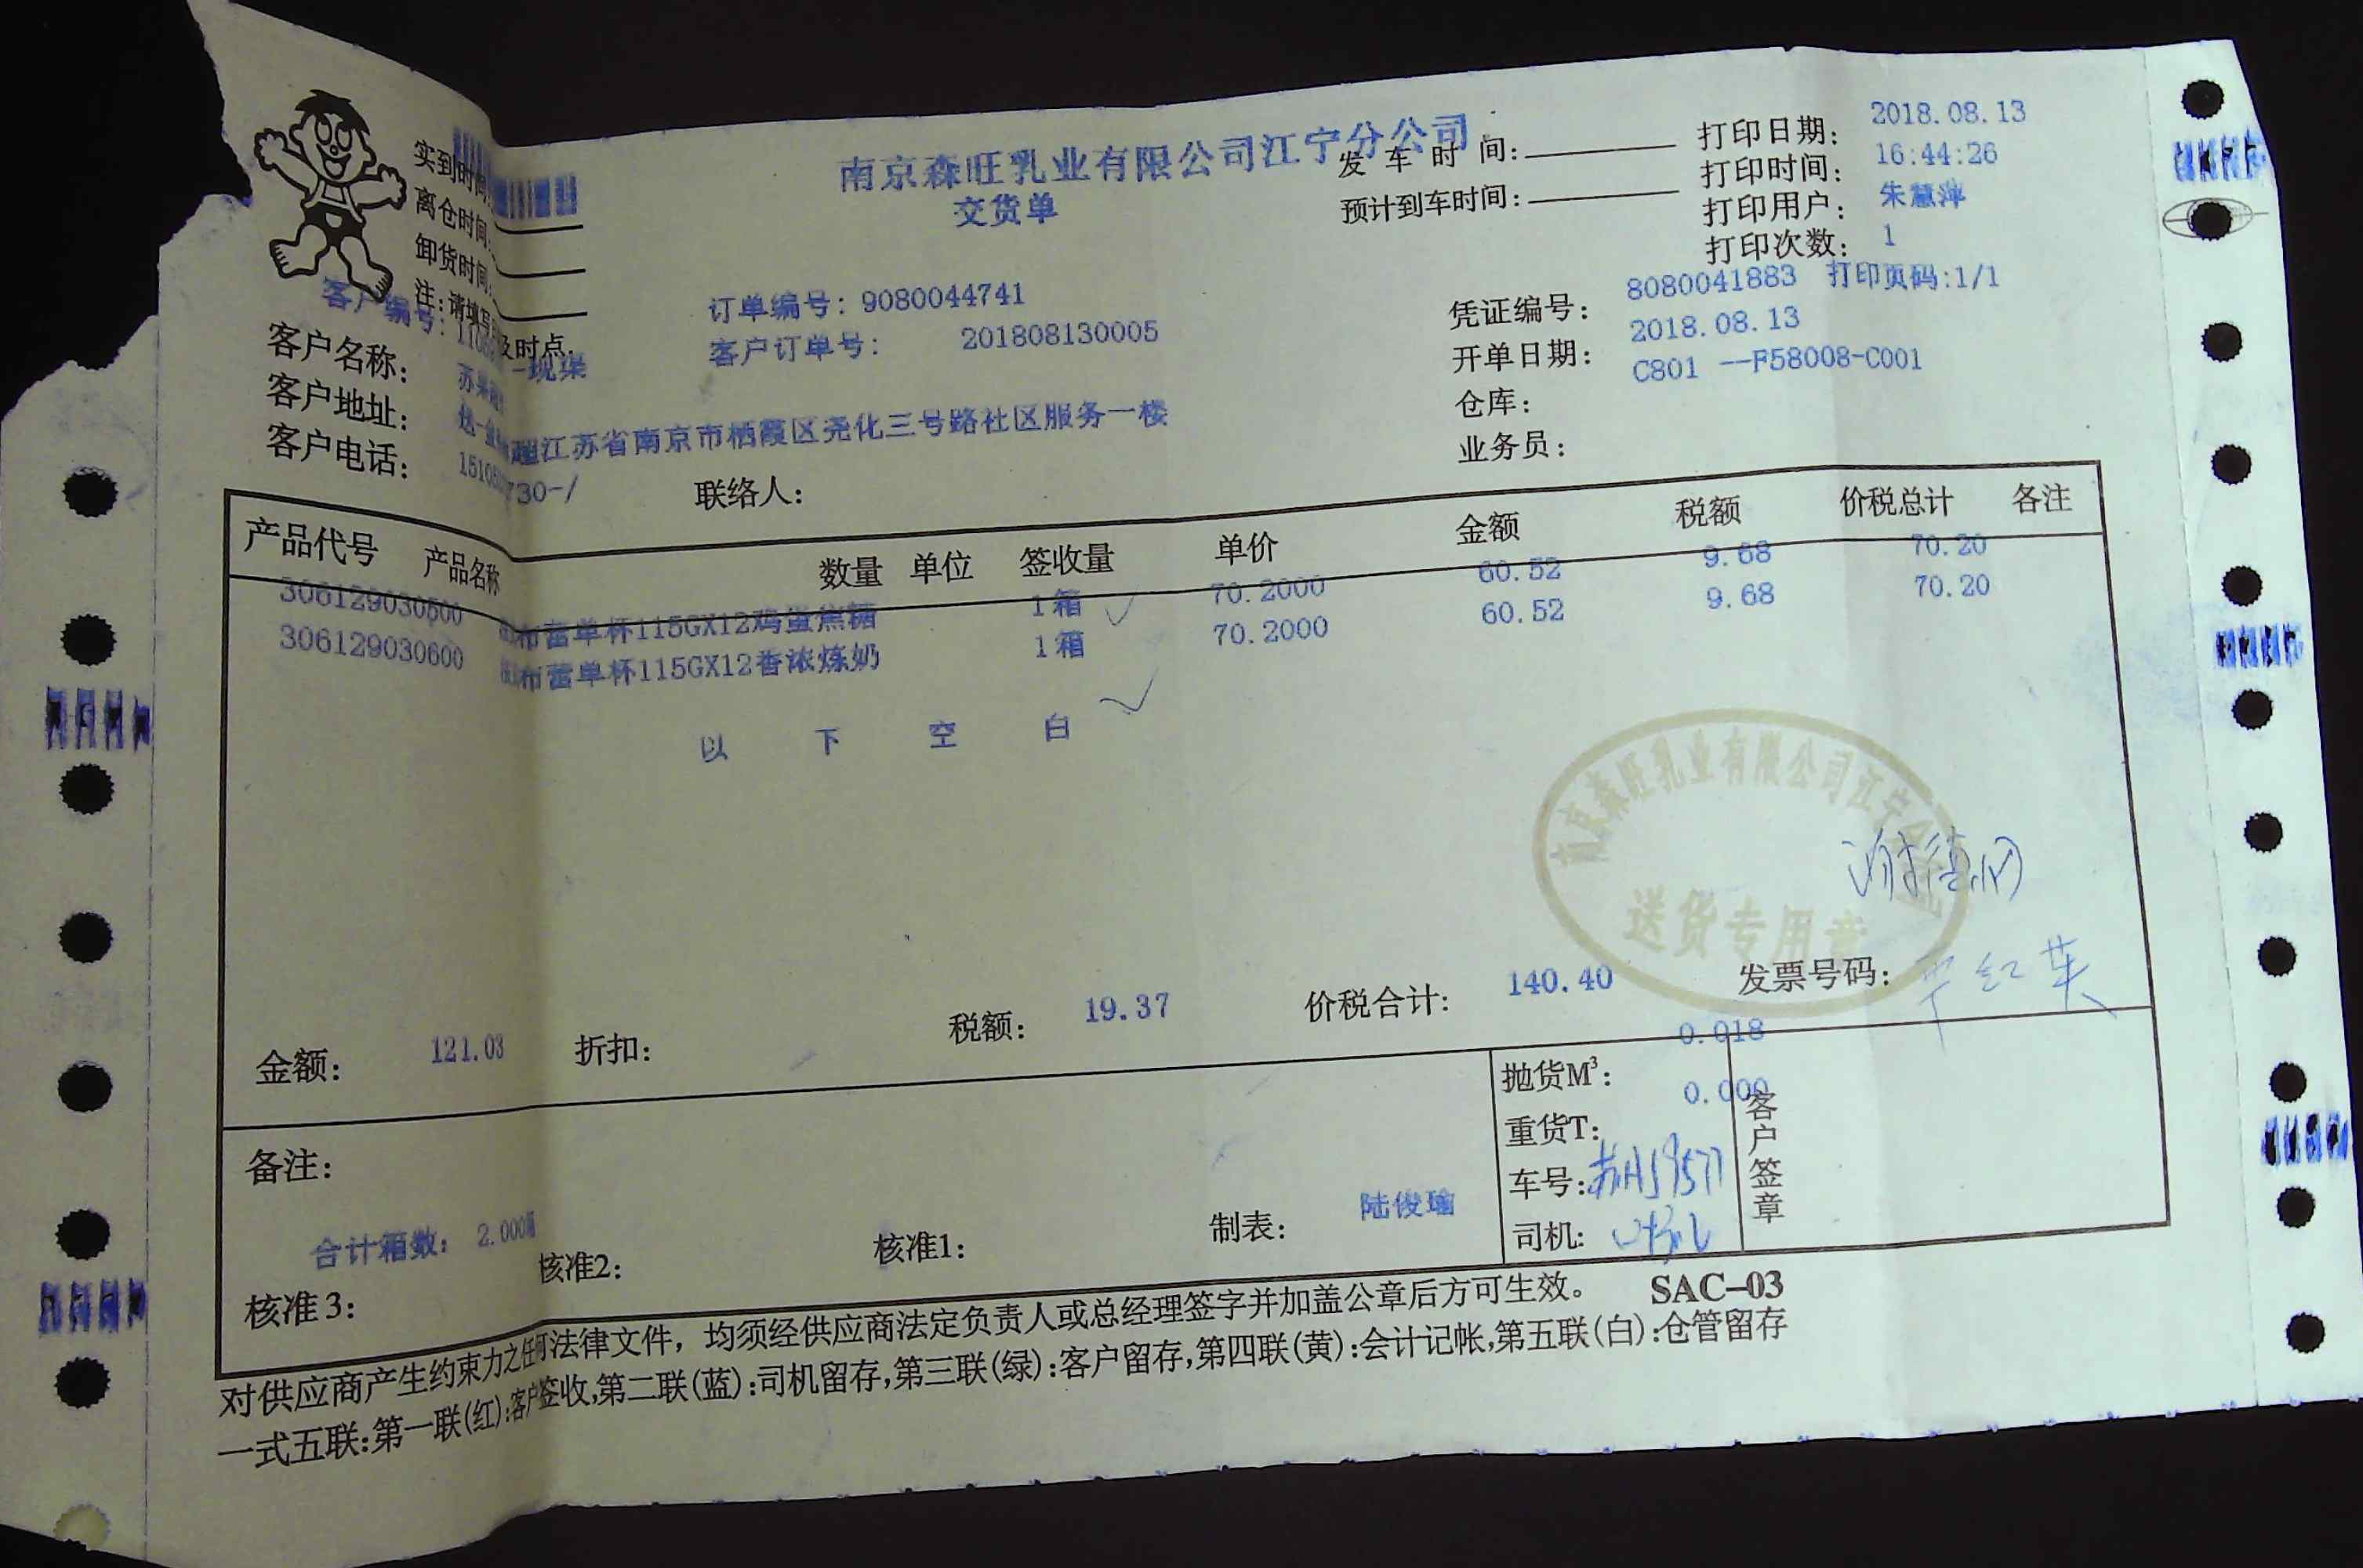 南京森旺乳业有限公司江宁分公司
交货单
实到时间:
离仓时间:
卸货时间:
注:请填写 及时点.
发车时间:
预计到车时间:
打印日期: 2018.08.13
打印时间: 16:44:26
打印用户: 朱慧萍
打印次数: 1
客户编号: 110 -现渠
订单编号: 9080044741
凭证编号: 8080041883 打印页码:1/1
客户名称: 苏果
客户订单号: 201808130005
开单日期: 2018.08.13
客户地址: 江苏省南京市栖霞区尧化三号路社区服务一楼
仓库: C801 --F58008-C001
客户电话: 1510 730-/
联络人:
业务员:
产品代号 产品名称 数量 单位 签收量 单价 金额 税额 价税总计 各注
306129030500 布蕾单杯115GX12鸡蛋焦糖 1箱 ✓ 70.2000 60.52 9.68 70.20
306129030600 布蕾单杯115GX12香浓炼奶 1箱 ✓ 70.2000 60.52 9.68 70.20
以下空白
南京森旺乳业有限公司江宁分公司
送货专用章
金额: 121.03 折扣: 税额: 19.37 价税合计: 140.40 发票号码:
备注:
抛货M³: 0.018
重货T: 0.000
车号: 苏A19577
司机:
客户签章
合计箱数: 2.000箱
核准3: 核准2: 核准1: 制表: 陆俊瑜
对供应商产生约束力之任何法律文件，均须经供应商法定负责人或总经理签字并加盖公章后方可生效。 SAC-03
一式五联:第一联(红):客户签收,第二联(蓝):司机留存,第三联(绿):客户留存,第四联(黄):会计记帐,第五联(白):仓管留存